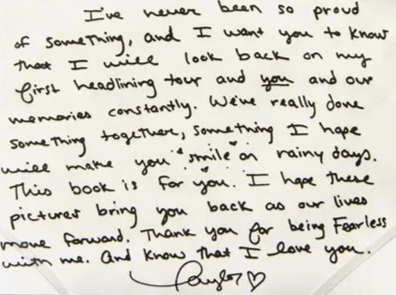 I've never been so proud
of something, and I want you to know
that I will look back on my
first headlining tour and you and our
memories constantly. We've really done
something together, something I hope
will make you smile on rainy days.
This book is for you. I hope these
pictures bring you back as our lives
move forward. Thank you for being Fearless
with me. And know that I love you.
Taylor♡